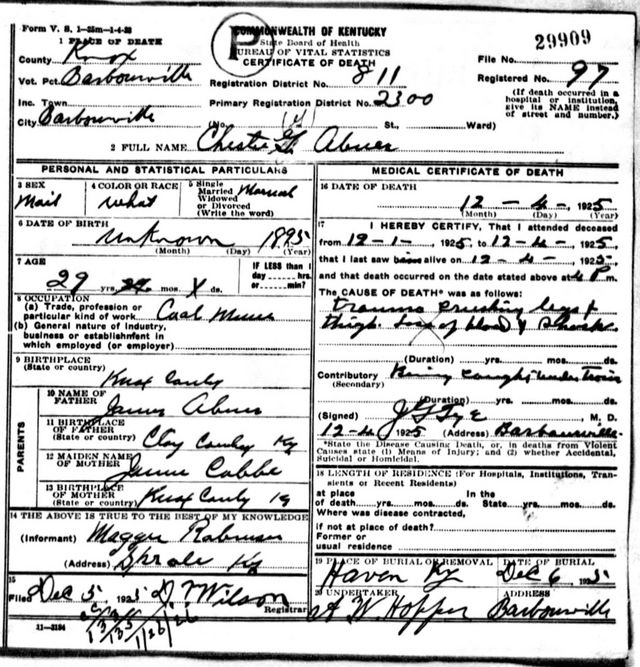 Form V. S. 1-25m-1-4-23
COMMONWEALTH OF KENTUCKY
State Board of Health
BUREAU OF VITAL STATISTICS
CERTIFICATE OF DEATH
P
29909
1 PLACE OF DEATH
County Knox
Vot. Pct. Barbourville
Inc. Town
City Barbourville
Registration District No. 811
Primary Registration District No. 2300
(No. St., Ward)
File No.
Registered No. 97
(If death occurred in a hospital or institution, give its NAME instead of street and number.)
2 FULL NAME Chestie G. Abner
PERSONAL AND STATISTICAL PARTICULARS
3 SEX Mail
4 COLOR OR RACE what
5 Single Married Widowed or Divorced (Write the word) Married
6 DATE OF BIRTH Unknown 1895
(Month) (Day) (Year)
7 AGE 29 yrs. mos. X ds.
IF LESS than 1 day hrs. or min.?
8 OCCUPATION
(a) Trade, profession or particular kind of work Coal Miner
(b) General nature of industry, business or establishment in which employed (or employer)
9 BIRTHPLACE (State or country) Knox County
PARENTS
10 NAME OF FATHER James Abner
11 BIRTHPLACE OF FATHER (State or country) Clay County Ky
12 MAIDEN NAME OF MOTHER Cobbe
13 BIRTHPLACE OF MOTHER (State or country) Knox County
14 THE ABOVE IS TRUE TO THE BEST OF MY KNOWLEDGE
(Informant) Maggie Robinson
(Address) Sprole Ky
15
Filed Dec 5 1925 Wilson
Registrar
11-3184
1/26/26
MEDICAL CERTIFICATE OF DEATH
16 DATE OF DEATH
12 - 4 - , 1925
(Month) (Day) (Year)
17 I HEREBY CERTIFY, That I attended deceased
from 12-1- , 1925, to 12-4- , 1925,
that I last saw alive on 12-4- , 1925,
and that death occurred on the date stated above at 4 P m.
The CAUSE OF DEATH* was as follows:
trauma crushing legs &
thigh. Loss of blood & Shock
(Duration) yrs. mos. ds.
Contributory Being caught under train
(Secondary)
(Duration) yrs. mos. ds.
(Signed) J G Tye , M. D.
12-4 1925 (Address) Barbourville
*State the Disease Causing Death, or, in deaths from Violent Causes state (1) Means of Injury; and (2) whether Accidental, Suicidal or Homicidal.
18 LENGTH OF RESIDENCE (For Hospitals, Institutions, Transients or Recent Residents)
at place of death yrs. mos. ds. In the State yrs. mos. ds.
Where was disease contracted,
if not at place of death?
Former or usual residence
19 PLACE OF BURIAL OR REMOVAL Haven Ky
DATE OF BURIAL Dec 6 1925
20 UNDERTAKER A W Hopper
ADDRESS Barbourville